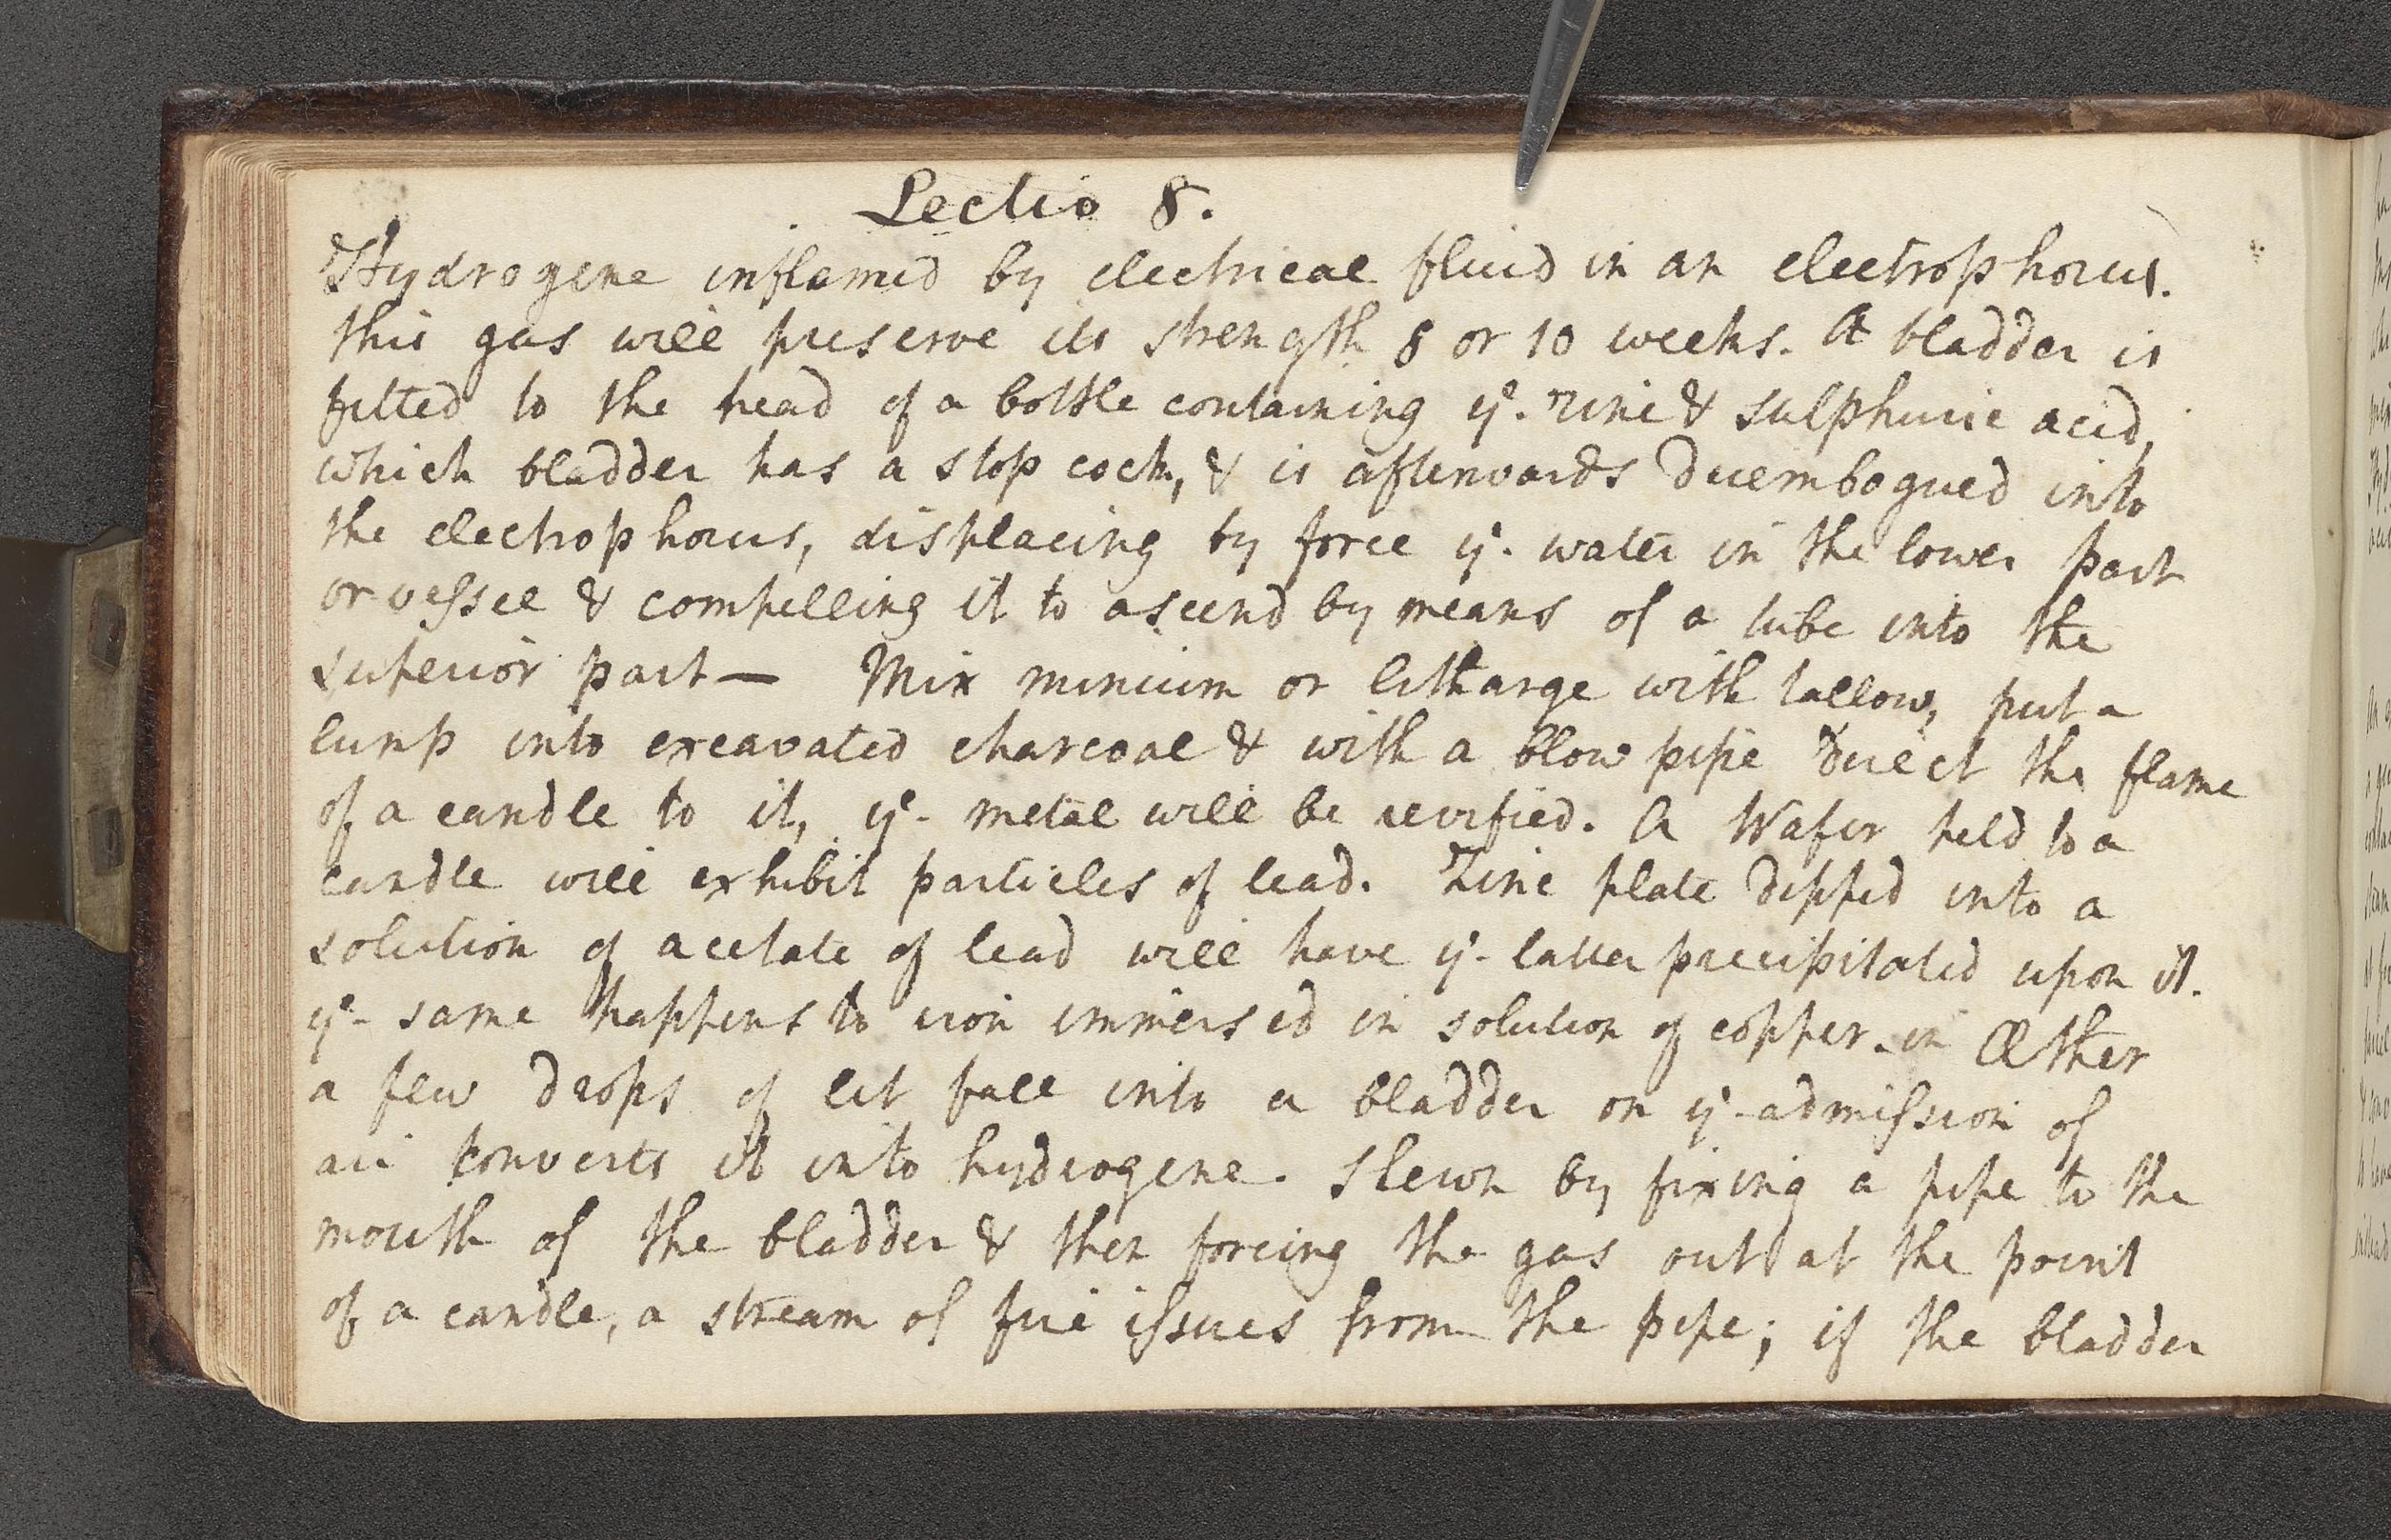 Lectio 8.
Hydrogene inflamed by electrical fluid in an electrophorus.
this gas will preserve its strength 8 or 10 weeks. A bladder is
fitted to the head of a bottle containing ye. zinc & sulphuric acid,
which bladder has a stop cock, & is afterwards disembogued into
the electrophorus, displacing by force ye. water in the lower part
or vessel & compelling it to ascend by means of a tube into the
superior part — Mix minium or litharge with tallow, put a
lump into excavated charcoal & with a blow pipe direct the flame
of a candle to it, ye. metal will be revified. A Wafer held to a
candle will exhibit particles of lead. Zinc plate dipped into a
solution of acetate of lead will have ye. latter precipitated upon it.
ye. same happens to iron immersed in solution of copper. in Æther
a few drops of let fall into a bladder on ye. admission of
air converts it into hydrogene. Shewn by fixing a pipe to the
mouth of the bladder & then forcing the gas out at the point
of a candle, a stream of fire issues from the pipe; if the bladder